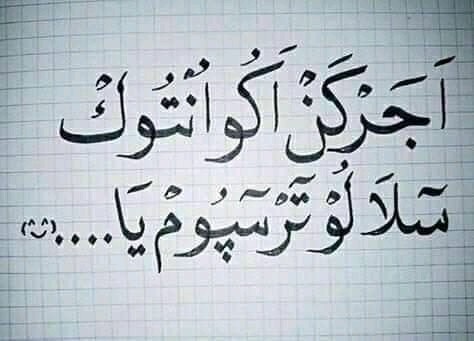 اَجَرْكَنْ اَكُو اُنْتُوكْ
سٓلَالُوْ تٓرْسٓپُوْمْ يَا....(^‿^)